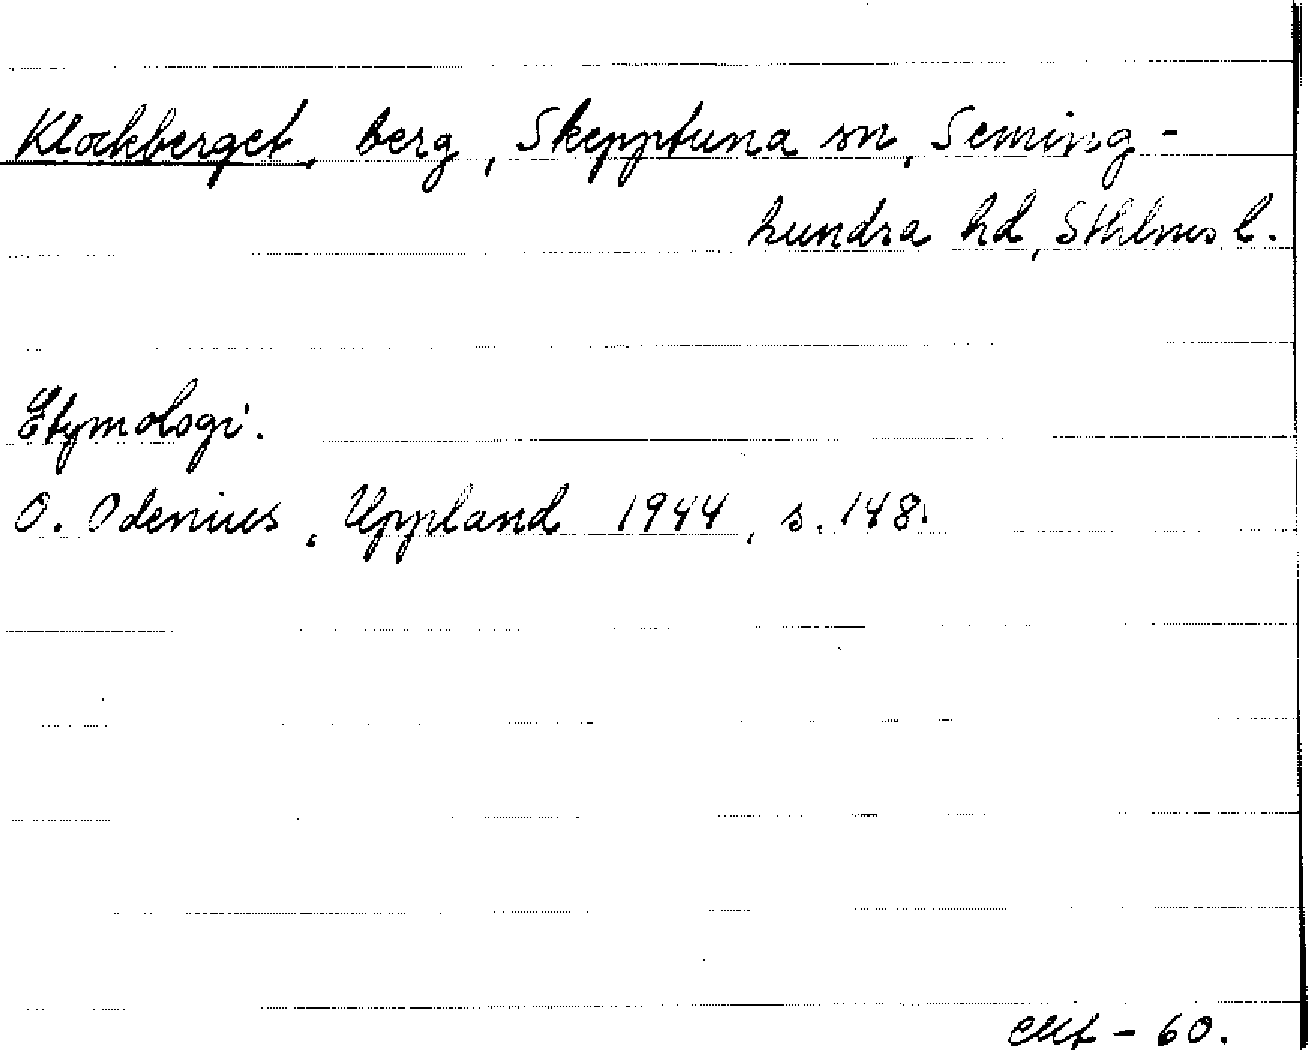 Klockberget, berg, Skepptuna sn, Seming-
hundra hd, Sthlms l.
Etymologi.
O. Odenius, Uppland 1944, s. 148.
- 60.